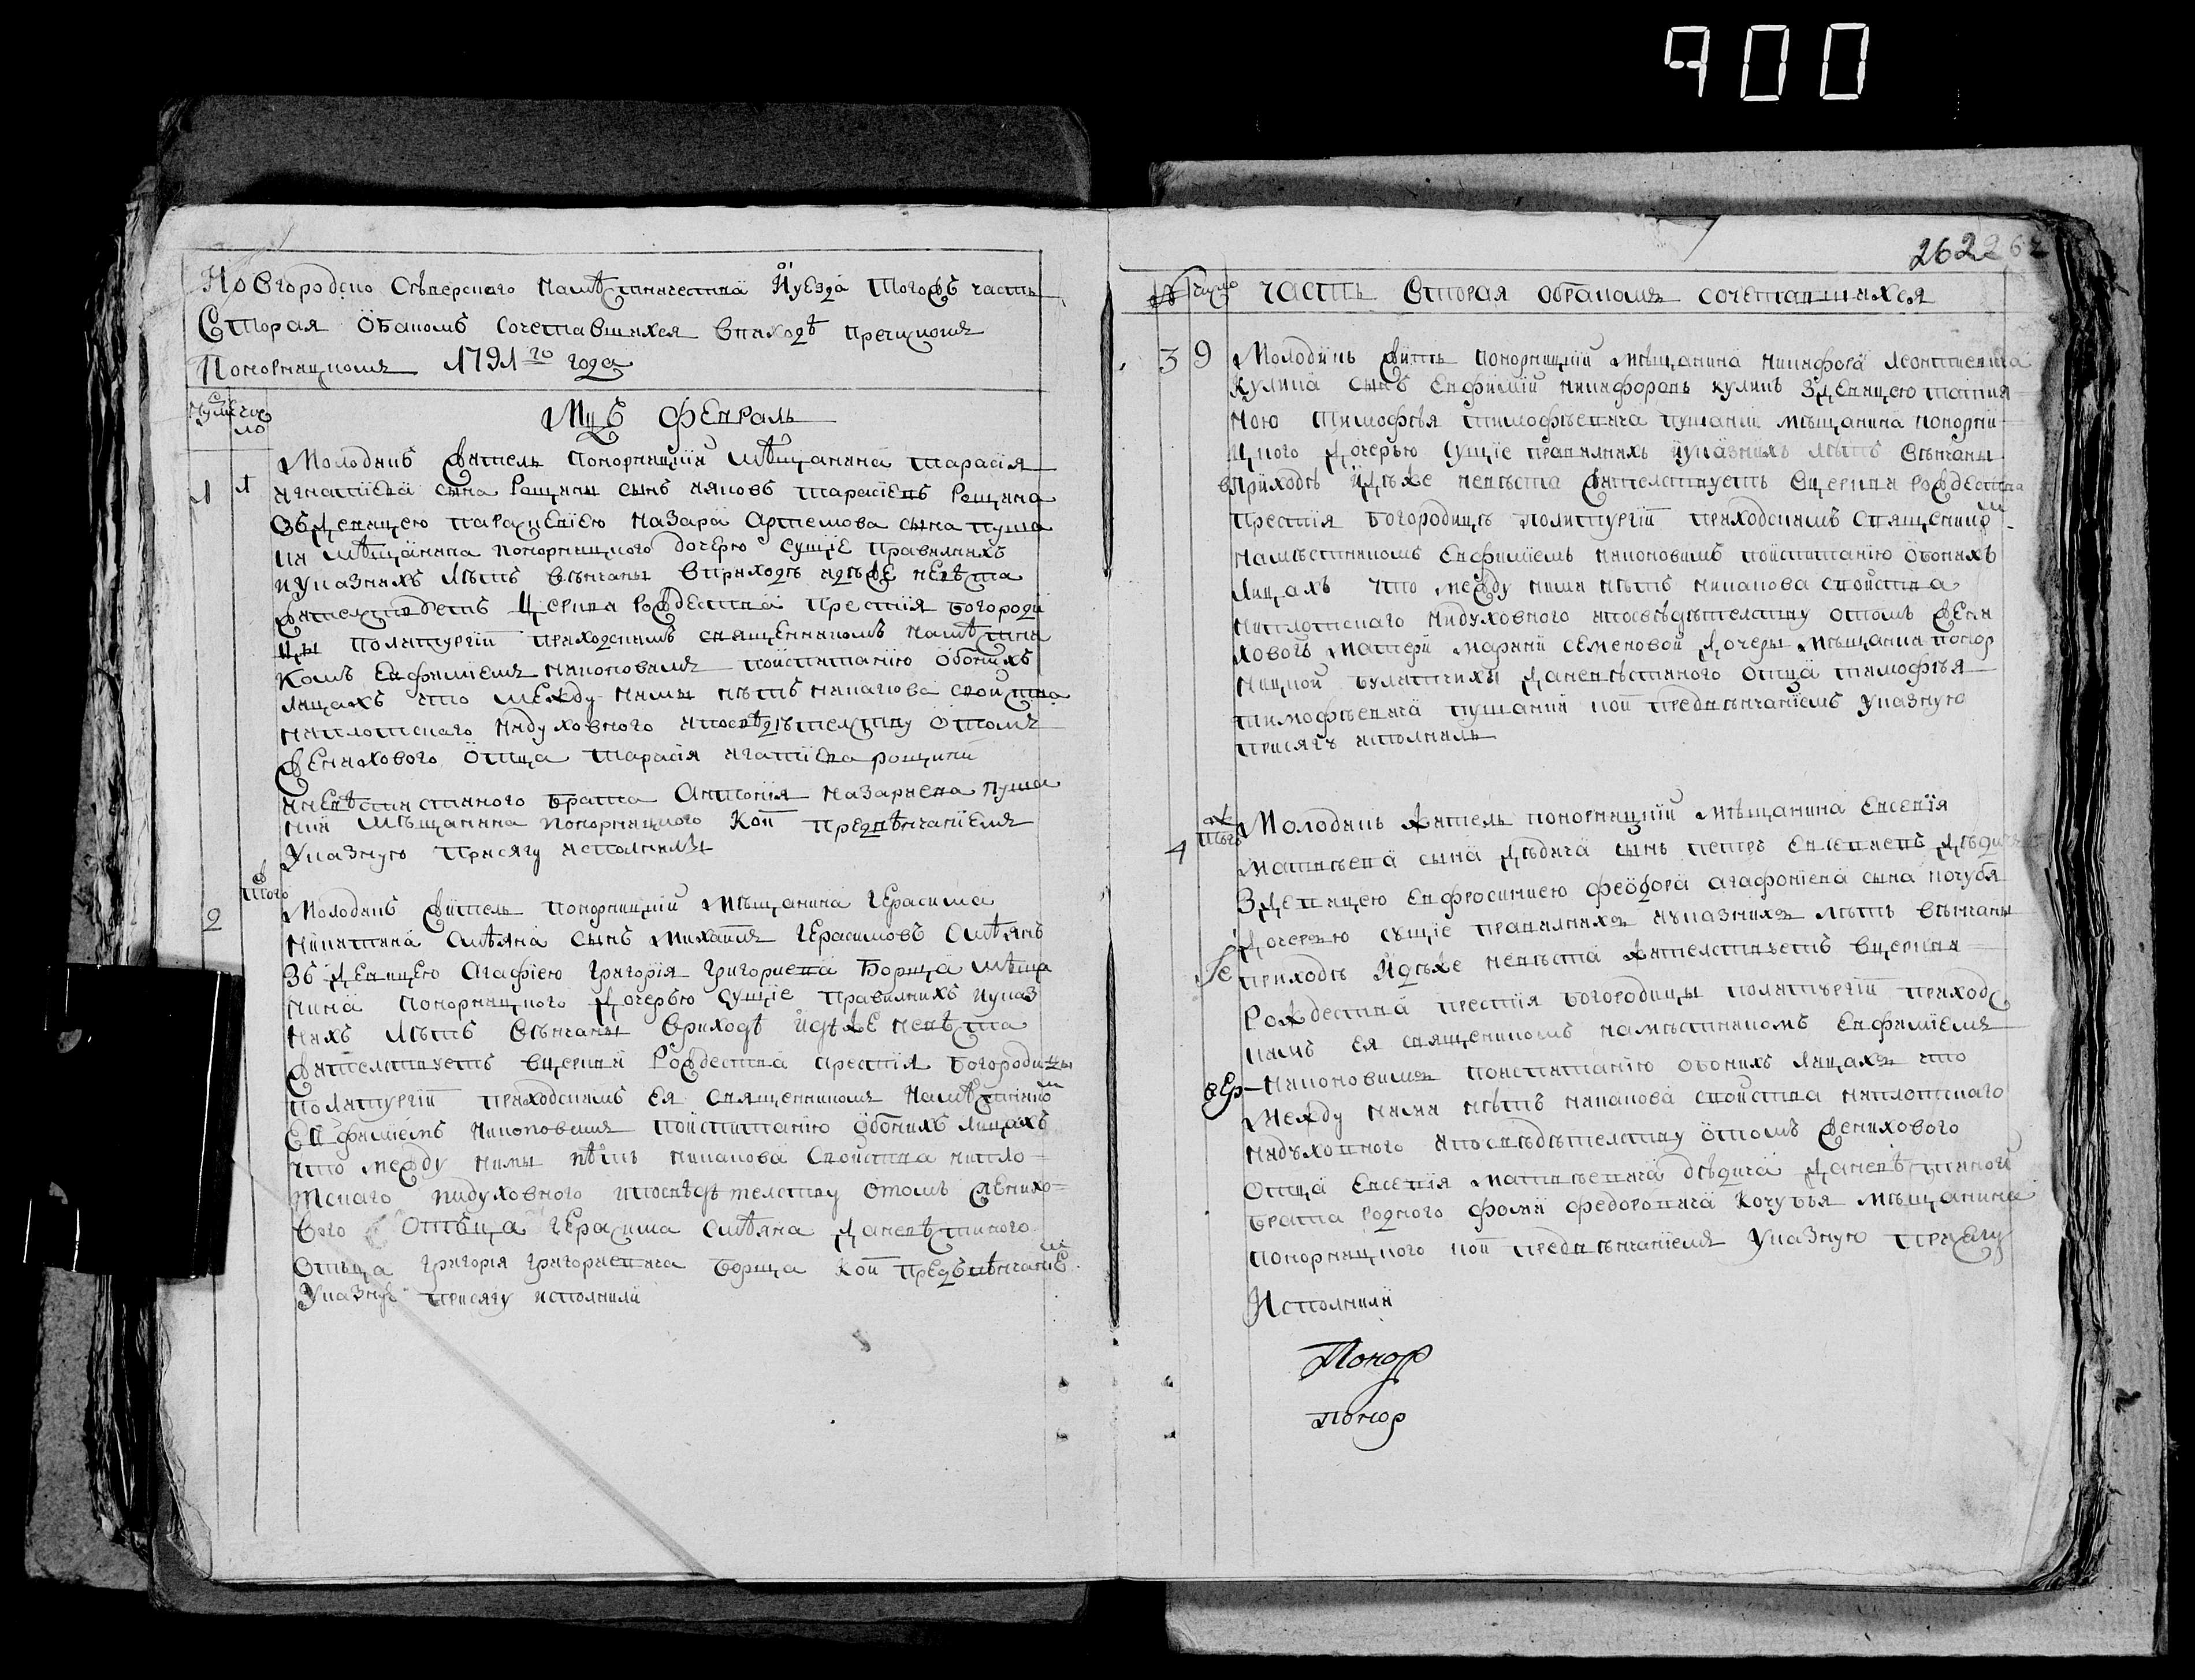 900
Новгородско Сѣверского Намѣстничества Йуезда Тогожъ часть
Сторая Ѻбаюомъ Сочетавшихся Вприходѣ пречистои
Понорницкомъ 1791 го года
число
Мцъ февраль
1 1
Молодикъ житель Понорницкїй мѣщанина тарасїя
игнатїева сына Рощины сынъ іаковъ тарасїевъ Рощина
Зъдевицею параскевїею назара Артемова сына пуша
ия мѣщанина понорницкого дочерю сущїе правилнихъ
иуказнихъ лѣтъ вѣнчаны вприходѣ идѣже невѣста
жителствуетъ Церкви Рождества Престїя богороди
цы политургїи приходскимъ священникомъ намѣстни
комъ Евфимїемъ поиспитанїю обоихъ
лицахъ что между ними нѣтъ никакова свойства
ниплотского нидуховного ипосвѣдѣтелству отомъ
Женихового Отца тарасїя игатїева рощини
иневѣстинствиного брата Антонїя назариева пуша
мѣщанина понорницкого Кои предвѣнчанїемъ
Указную присягу исполнилы
2 того ж
Молодикъ житель понорницкїй мѣщанина Герасима
Никитина Омѣяна сынъ Михаилъ Герасимовъ Омѣянъ
Зъ девицею Агафїею григорїя григориева Борща мѣща
нина понорницкого дочерью сущїе правилнихъ иуказ
нихъ лѣтъ вѣнчаны вриходѣ идѣже невѣста
жителствуетъ вцеркви Рождества престїя Богородицы
политургїи приходскимъ ея священникомъ Намѣстнико
Евфимїемъ поиспитанїю обоихъ лицахъ
что между ними нѣтъ никакова Свойства нипло
тскаго нидуховного ипосвѣдѣтелству отомъ Женихо
вого Отъца Герасима Омѣяна Даневѣстиного
Отьца григорїя григориевича Борща Кои предъвѣнчание
Указную присягу исполнили
262 262
№ число часть Вторая обракомъ сочетавшихся
3 9
Молодикъ житъ понорницкїй мѣщанина никифора леонтиевича
Кулика сынъ Евфимїй никифоровъ куликъ Здевицею татия
ною тимофѣя тимофѣевича мѣщанина понорни
цкого дочерью сущїе правилнихъ иуказнихъ лѣтъ вѣнчаны
вприходѣ идѣже невѣста жителствуетъ вцеркви рождества
престїя Богородицѣ политургїи приходскимъ священико
намѣстникомъ Евфимїемъ поиспитанїю обоихъ
лицахъ что между ними нѣтъ никакова свойства
ниплотскаго нидуховного ипосвѣдѣтелству отомъ жени
ховой матери марїи семеновой дочеры мѣщанки понор
ницкой Даневѣстиного отца тимофѣя
тимофѣевича кои предвѣнчанїемъ указную
присягѫ исполнилы
4 тогож
Молодикъ житель понорницкїй мѣщанина Евсевїя
матвѣева сына Дѣдича сынъ петръ Евсевиевъ Дѣдич
Здевицею Евфросиниею феодора агафонїева сына кочубя
дочерью сущїе правилнихъ иуказнихъ лѣтъ вѣнчаны
приходѣ Идѣже невѣста жителствуетъ вцеркви
Рождества престїя Богородицы политургїи приход
скимъ ея священикомъ намѣстникомъ Евфимїемъ
поиспитанїю обоихъ лицахъ что
между ними нѣтъ никакова свойства ниплотскаго
нидуховного ипосвѣдѣтелству отомъ женихового
Отца Евсевїя матвѣевича дѣдича Даневѣстиной
брата родного фоми федоровича Кочубъя мѣщанина
понорницкого кои предвѣнчанїемъ Указную присягу
Исполнили
Понор
понор